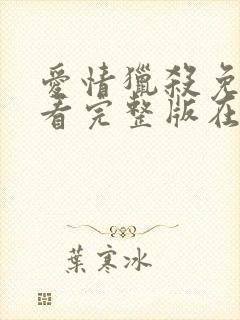 愛情獵殺免
看完整版在
葉寒冰